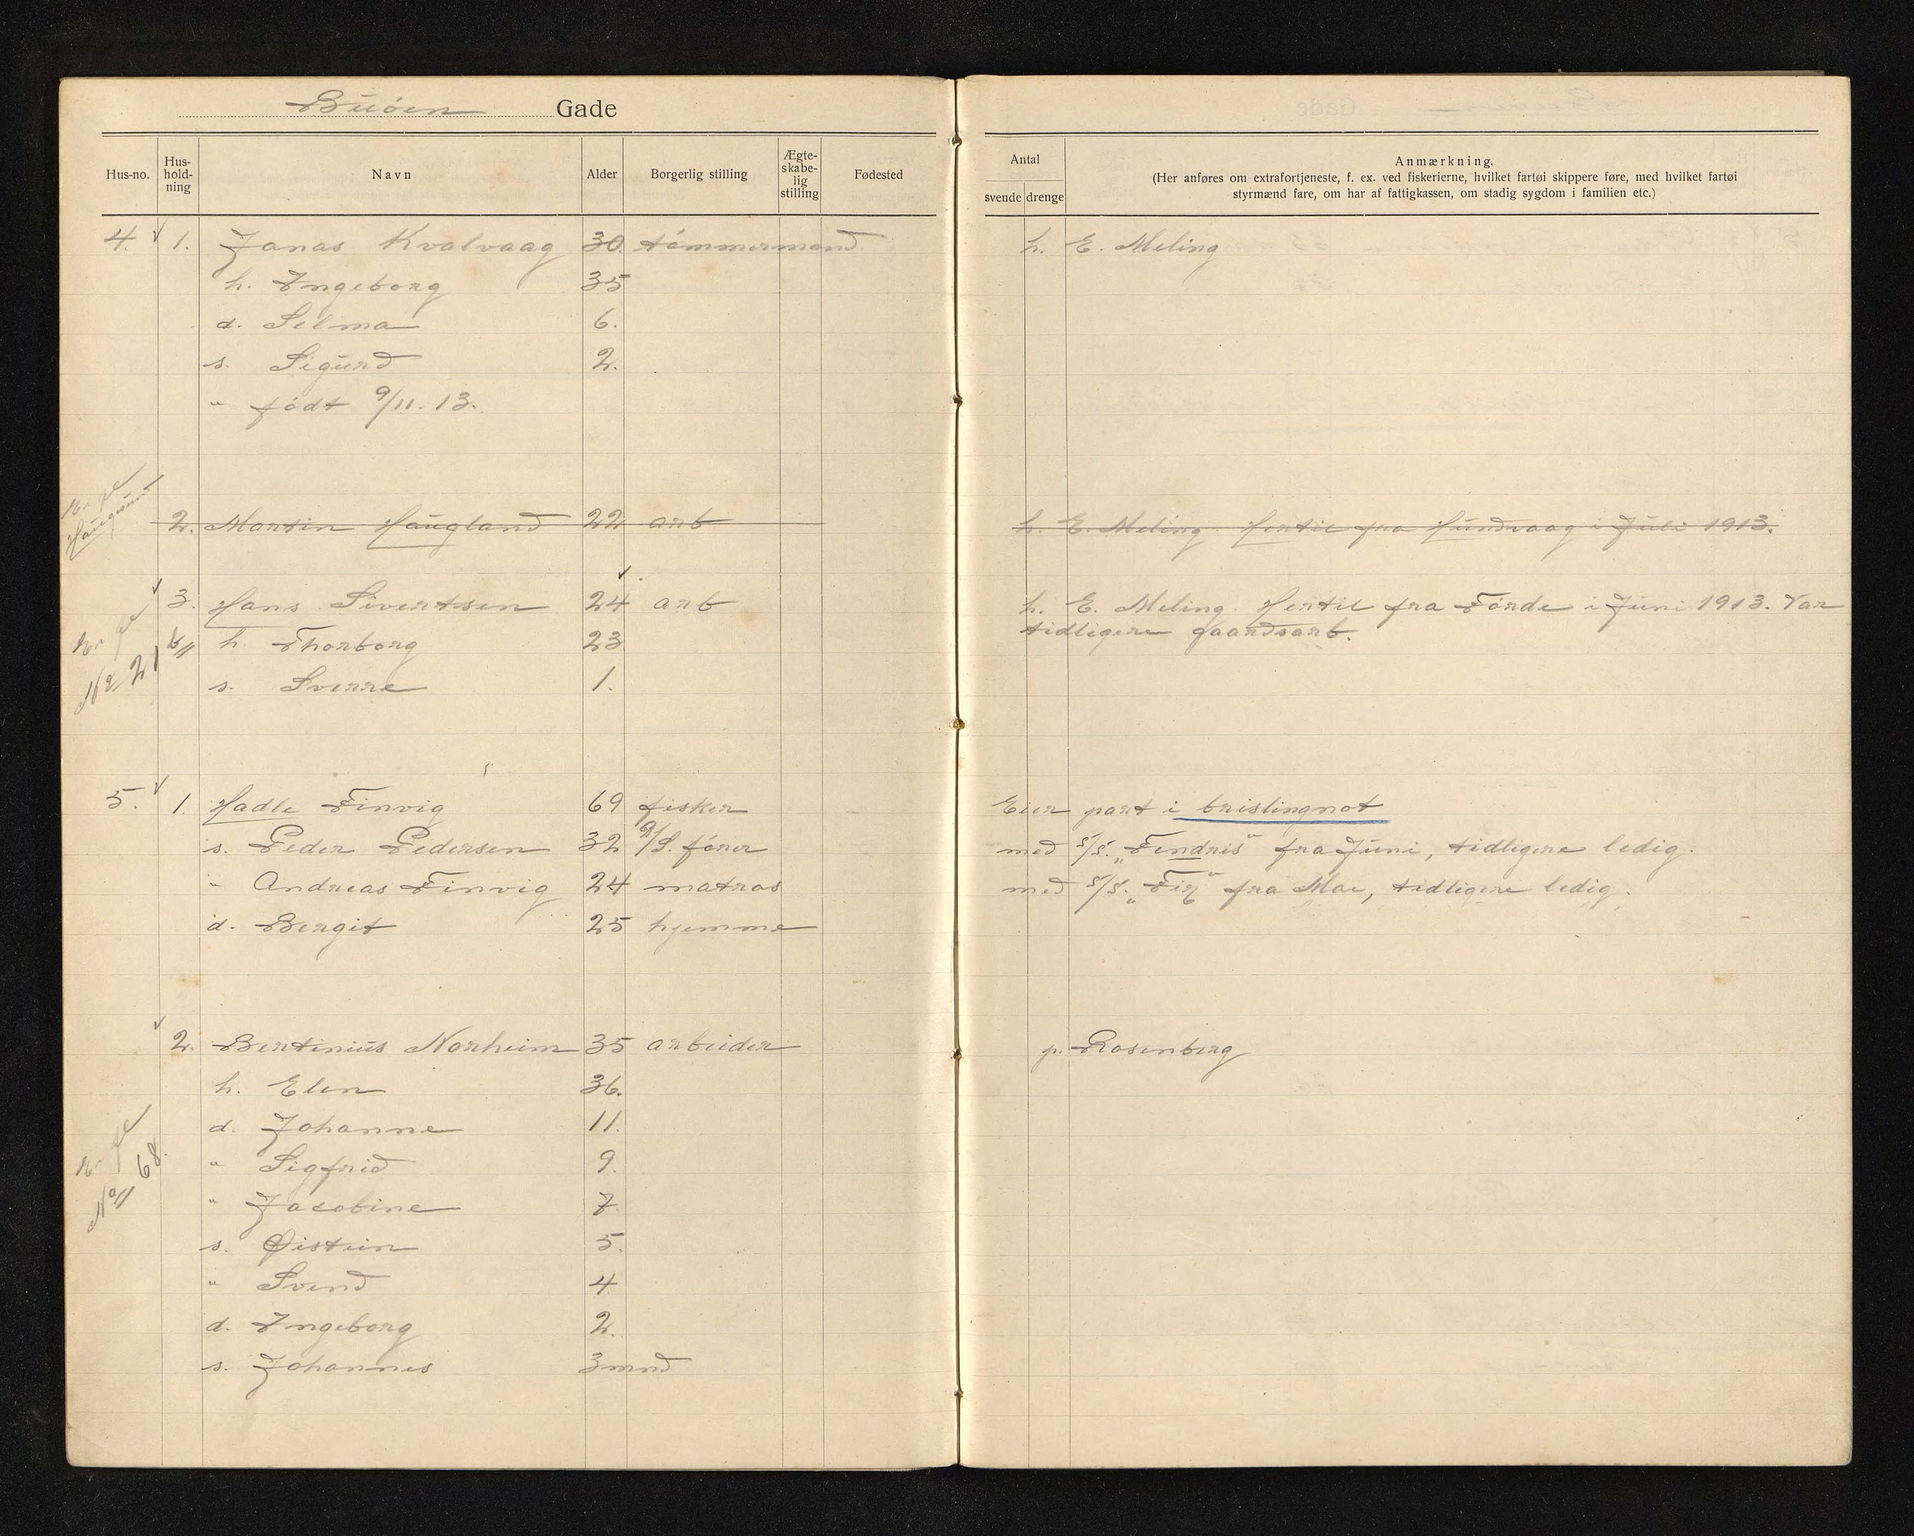 Buöen Gade
Hus-no. Hus-hold-ning Navn Alder Borgerlig stilling Ægte-skabe-lig stilling Fødested
Antal svende drenge Anmærkning.
(Her anføres om extrafortjeneste, f. ex. ved fiskerierne, hvilket fartøi skippere føre, med hvilket fartøi
styrmænd fare, om har af fattigkassen, om stadig sygdom i familien etc.)
4. 1. Jonas Kvalvaag 30. tömmermand h. E. Meling
h. Ingeborg 35
d. Selma 6.
s. Sigurd 2.
" födt 9/11. 13.
Er fl Haugesund
2. Martin Haugland 22 arb h. E. Meling. Hertil fra Hundvaag i Juli 1913.
3. Hans Sivertsen 24 arb h. E. Meling. Hertil fra Förde i Juni 1913. Var
tidligere gaardsarb.
Er fl No 21
h. Thorborg 23
s. Sverre 1.
5. 1. Hadle Finvig 69 fisker Eier part i brislingnot
s. Peder Pedersen 32 D/S. förer med S/S. „Fendris" fra Juni, tidligere ledig.
" Andreas Finvig 24 matros med S/S. fra Mai, tidligere ledig.
d. Bergit 25 hjemme
2. Bertinius Norheim 35 arbeider p. Rosenberg
h. Elen 36.
d. Johanne 11.
Er fl No 68.
" Sigfrid 9.
" Jacobine 7.
s. Øistein 5.
" Svend 4
d. Ingeborg 2.
s. Johannes 3 mnd